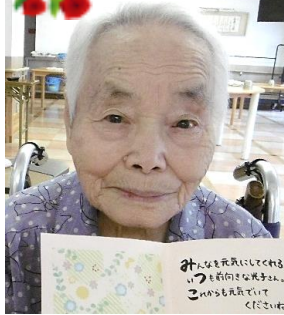 みんなを元気にしてくれる
いつも前向きな光子さん。
これからも元気でいて
くださいね